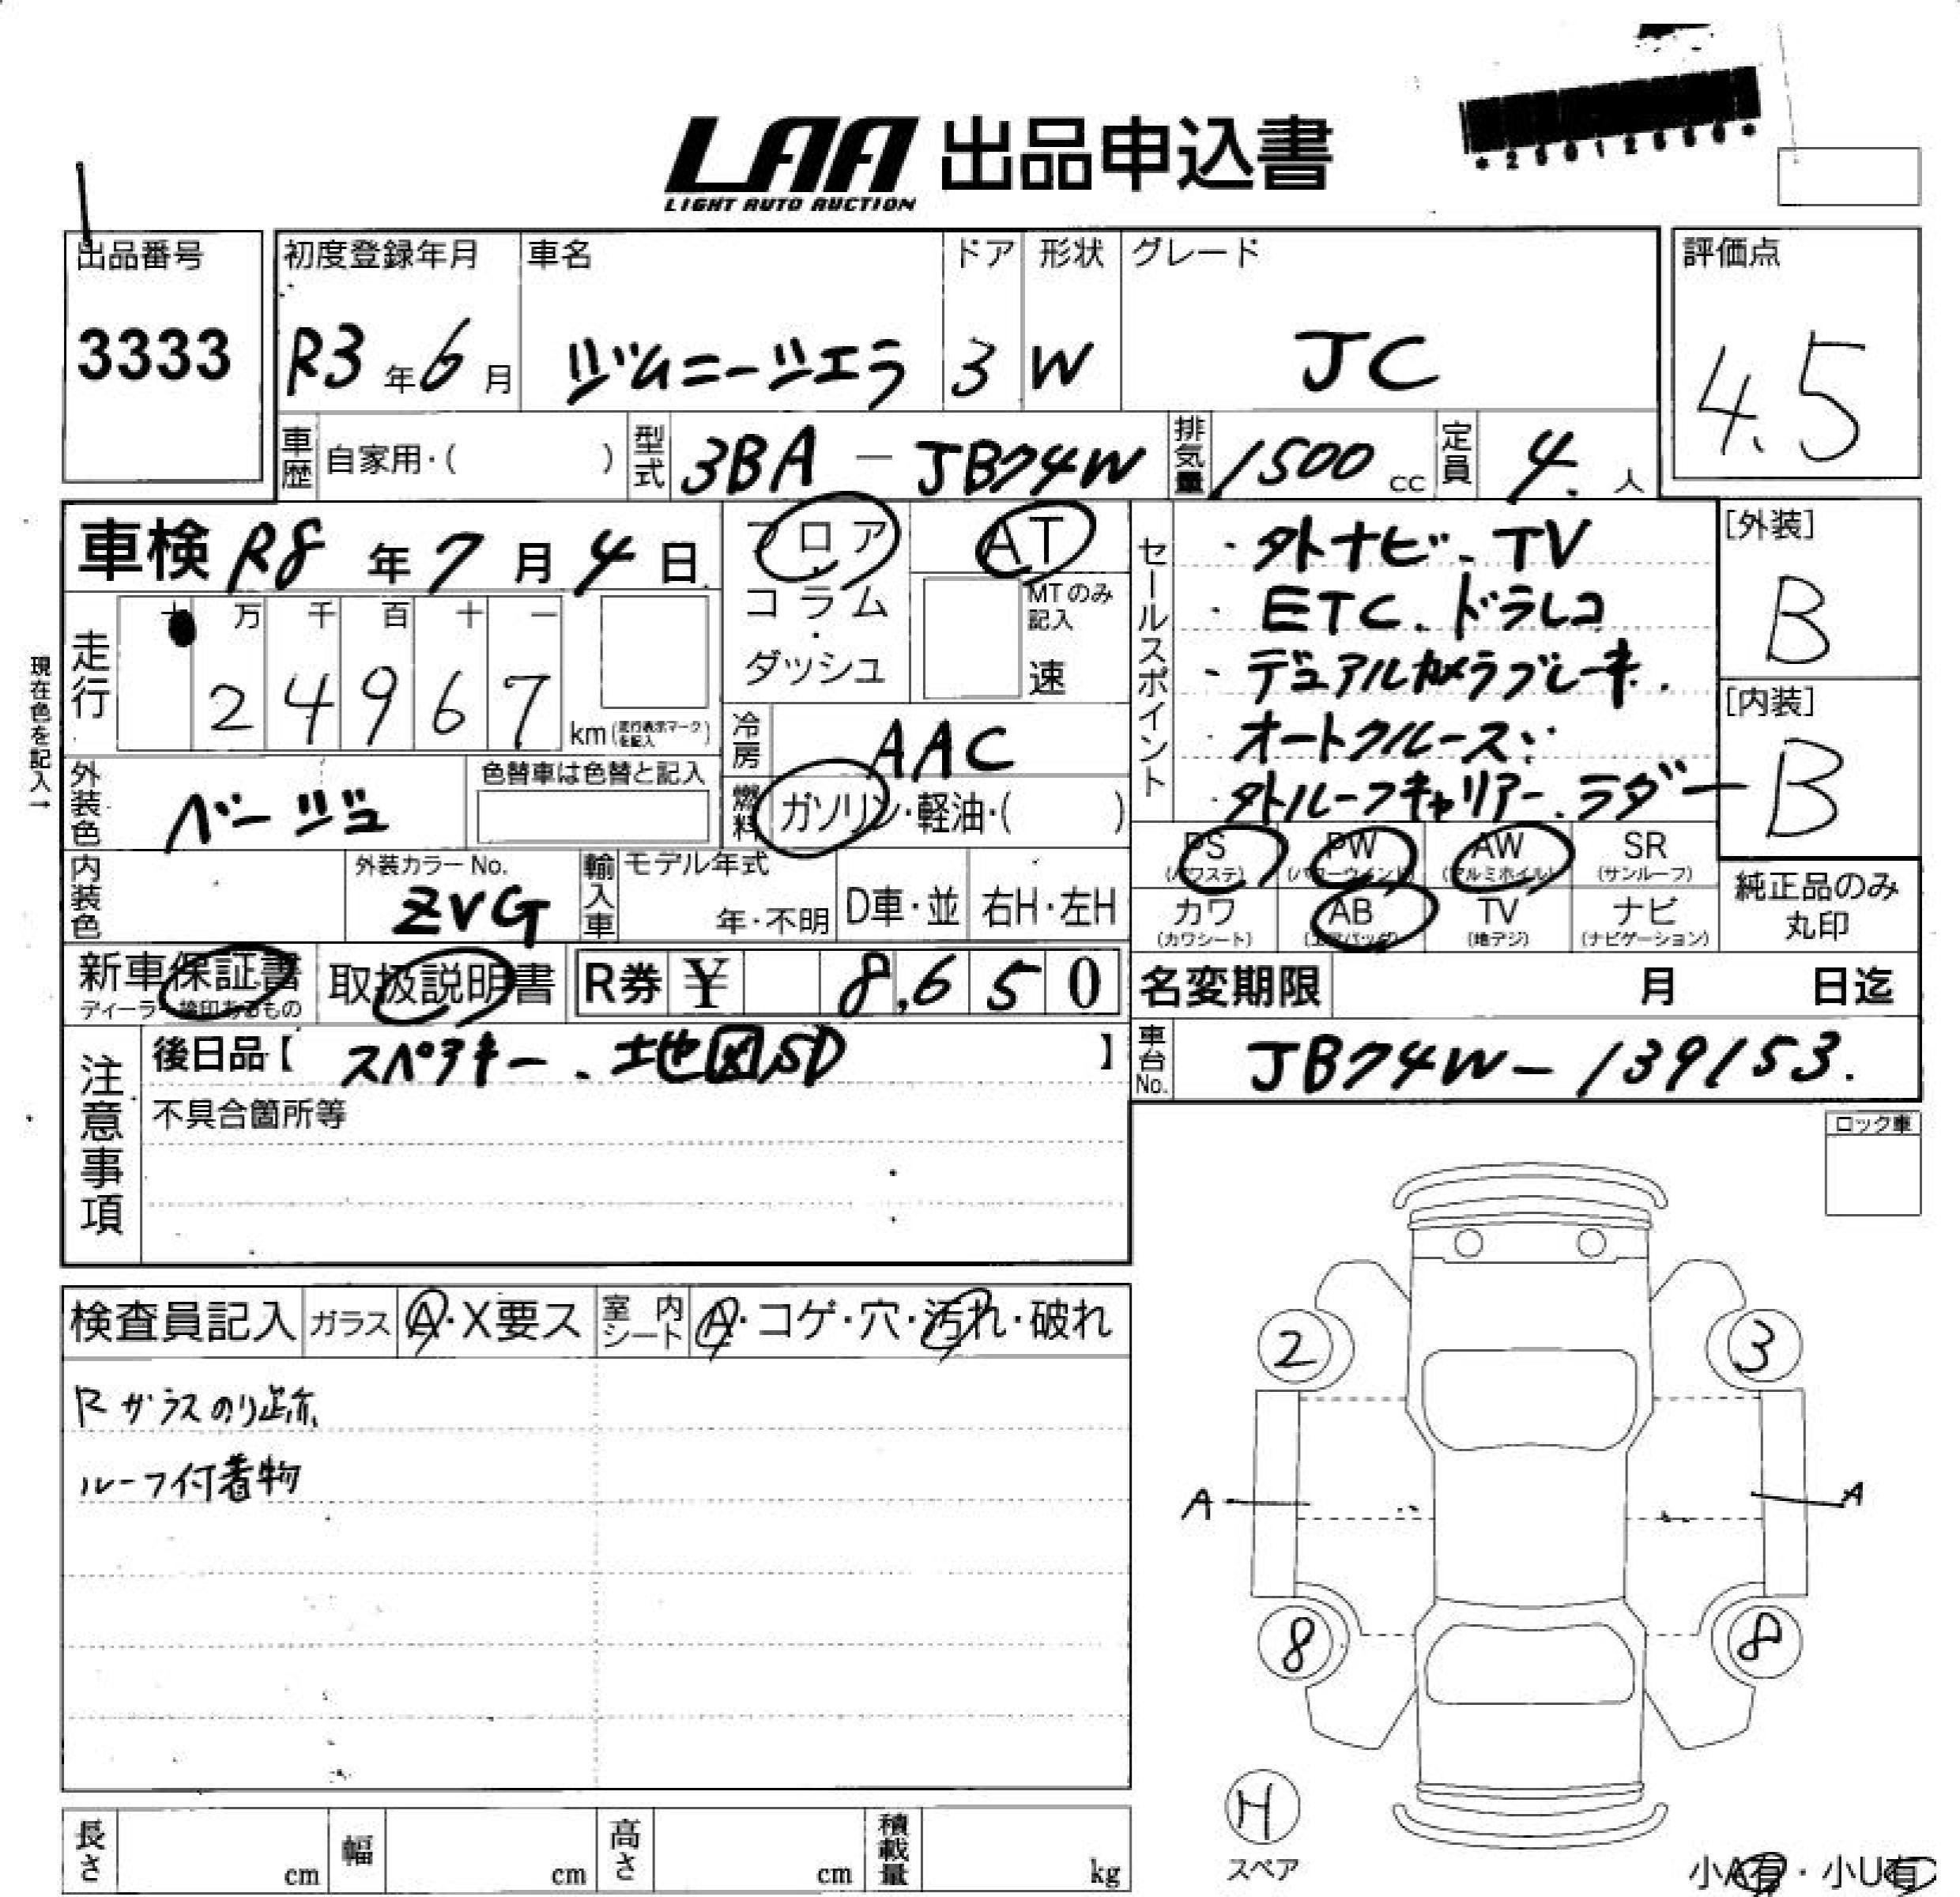 LAA 出品申込書
LIGHT AUTO AUCTION
出品番号
3333
初度登録年月
R3年6月
車名
ジムニーシエラ
ドア
3
形状
W
グレード
JC
評価点
4.5
車歴 自家用・( )
型式 3BA - JB74W
排気量 1500 cc
定員 4. 人
車検 R8年7月4日
フロア・コラム・ダッシュ
AT
MTのみ記入
速
走行 十万千百十一
24967
km(走行表示マークを記入)
現在色を記入→
外装色 ベージュ
色替車は色替と記入
冷房 AAC
燃料 ガソリン・軽油・( )
セールスポイント
・外ナビ、TV
・ETC、ドラレコ
・デュアルカメラブレーキ.
・オートクルーズ
・外ルーフキャリアー、ラダー
[外装]
B
[内装]
B
PS (パワステ)
PW (パワーウインド)
AW (アルミホイル)
SR (サンルーフ)
カワ (カワシート)
AB (エアバッグ)
TV (地デジ)
ナビ (ナビゲーション)
純正品のみ丸印
内装色
外装カラーNo.
ZVG
輸入車 モデル年式
年・不明
D車・並
右H・左H
新車保証書
ディーラー捺印あるもの
取扱説明書
R券 ¥ 8,650
名変期限 月 日迄
注意事項
後日品【スペアキー、地図SD】
不具合箇所等
車台No. JB74W-139153.
ロック車
検査員記入 ガラス A・X要ス
室内シート A・コゲ・穴・汚れ・破れ
Rガラスのり跡
ルーフ付着物
2
3
A
A
8
8
H
スペア
小A有・小U有
長さ cm
幅 cm
高さ cm
積載量 kg